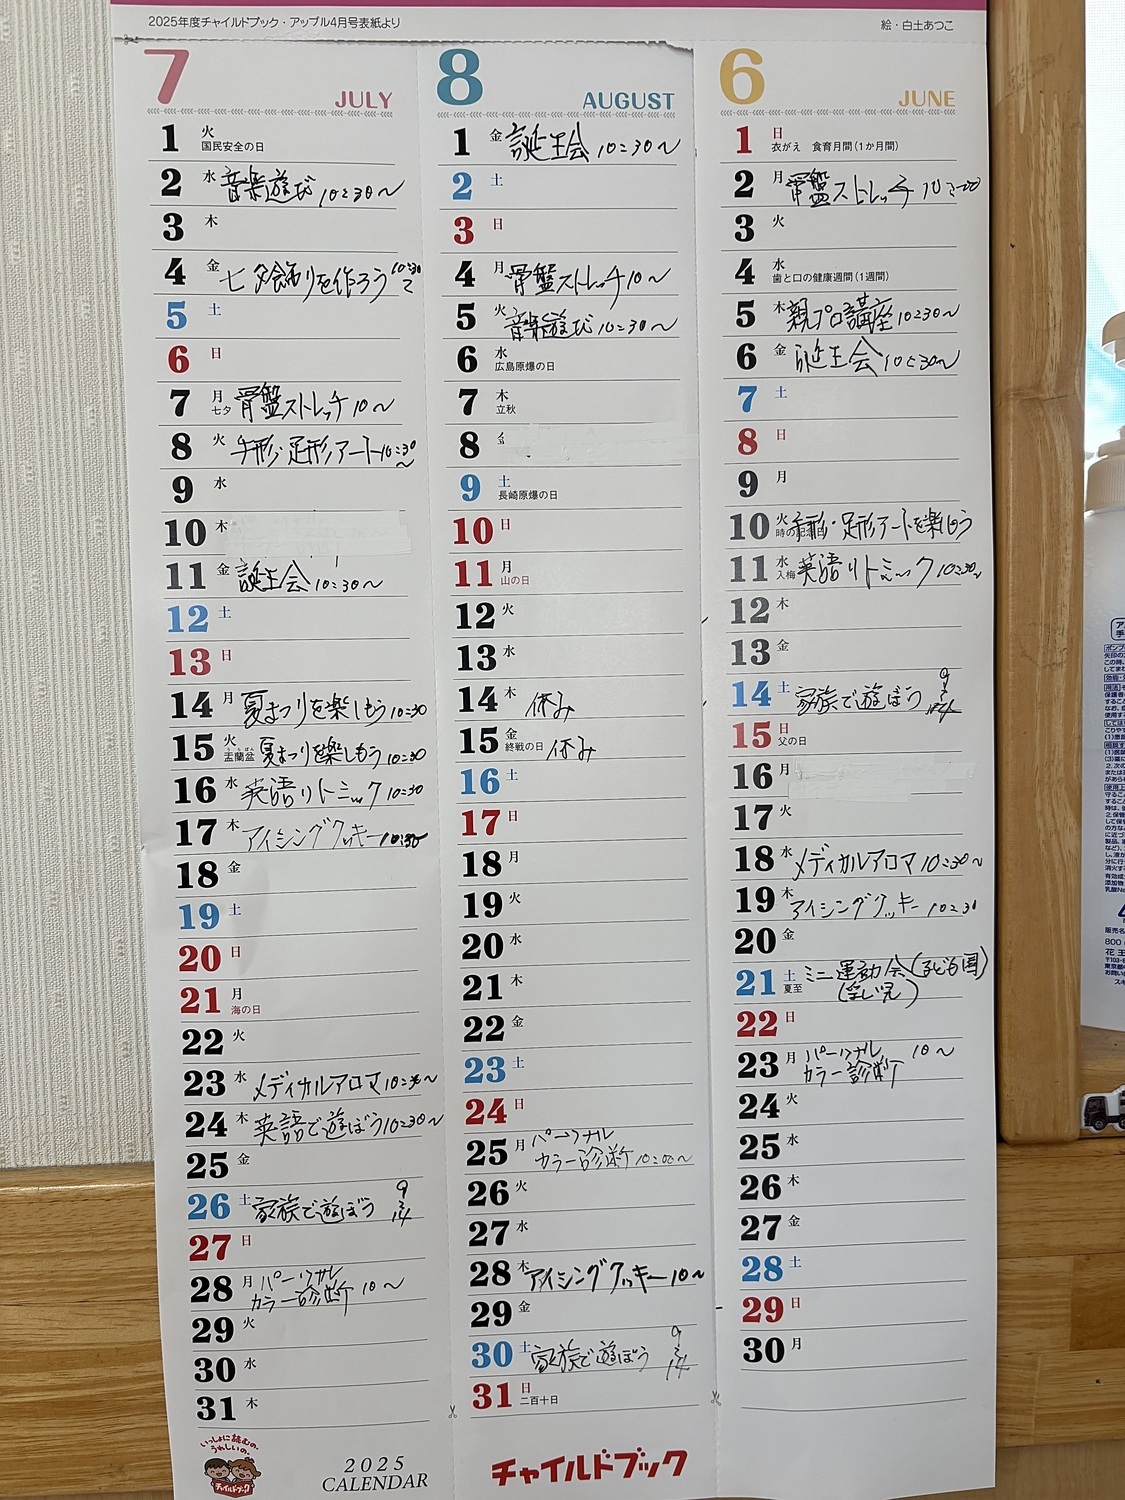 2025年度チャイルドブック・アップル4月号表紙より
絵・白土あつこ
7 JULY
1 火 国民安全の日
2 水 音楽遊び 10:30〜
3 木
4 金 七夕飾りを作ろう 10:30〜
5 土
6 日
7 月 七夕 骨盤ストレッチ 10〜
8 火 手形・足形アート 10:30〜
9 水
10 木
11 金 誕生会 10:30〜
12 土
13 日
14 月 夏まつりを楽しもう 10:30
15 火 盂蘭盆 うらぼん 夏まつりを楽しもう 10:30
16 水 英語リトミック 10:30
17 木 アイシングクッキー 10:30〜
18 金
19 土
20 日
21 月 海の日
22 火
23 水 メディカルアロマ 10:30〜
24 木 英語で遊ぼう 10:30〜
25 金
26 土 家族で遊ぼう 9〜14
27 日
28 月 パーソナル
カラー診断 10〜
29 火
30 水
31 木
いっしょに読むの、
うれしいの。
チャイルドブック
2025
CALENDAR
8 AUGUST
1 金 誕生会 10:30〜
2 土
3 日
4 月 骨盤ストレッチ 10〜
5 火 音楽遊び 10:30〜
6 水 広島原爆の日
7 木 立秋
8
9 土 長崎原爆の日
10 日
11 月 山の日
12 火
13 水
14 木 休み
15 金 終戦の日 休み
16 土
17 日
18 月
19 火
20 水
21 木
22 金
23 土
24 日
25 月 パーソナル
カラー診断 10:00〜
26 火
27 水
28 木 アイシングクッキー 10〜
29 金
30 土 家族で遊ぼう 9〜14
31 日 二百十日
チャイルドブック
6 JUNE
1 日 衣がえ 食育月間(1か月間)
2 月 骨盤ストレッチ 10:00
3 火
4 水 歯と口の健康週間(1週間)
5 木 親プロ講座 10:30〜
6 金 誕生会 10:30〜
7 土
8 日
9 月
10 火 時の記念日 手形・足形アートを楽しもう
11 水 入梅 英語リトミック 10:30〜
12 木
13 金
14 土 家族で遊ぼう 9〜14
15 日 父の日
16 月
17 火
18 水 メディカルアロマ 10:30〜
19 木 アイシングクッキー 10:30
20 金
21 土 夏至 ミニ運動会(子ども園)
22 日
23 月 パーソナル
カラー診断 10〜
24 火
25 水
26 木
27 金
28 土
29 日
30 月